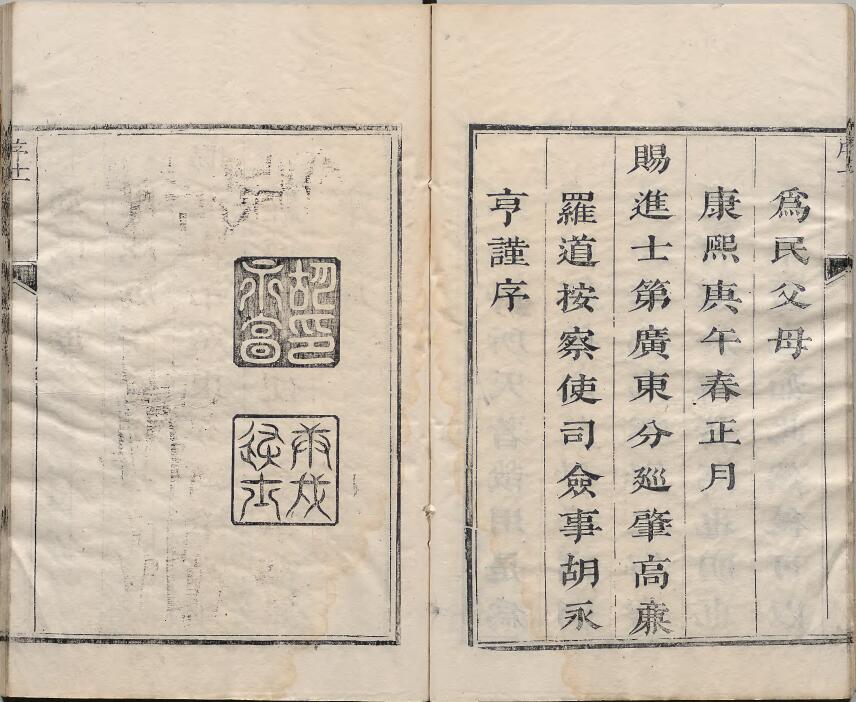 爲民父母
康熙庚午春正月
賜進士第廣東分巡肇高廉
羅道按察使司僉事胡永
亨謹序
胡永亨印